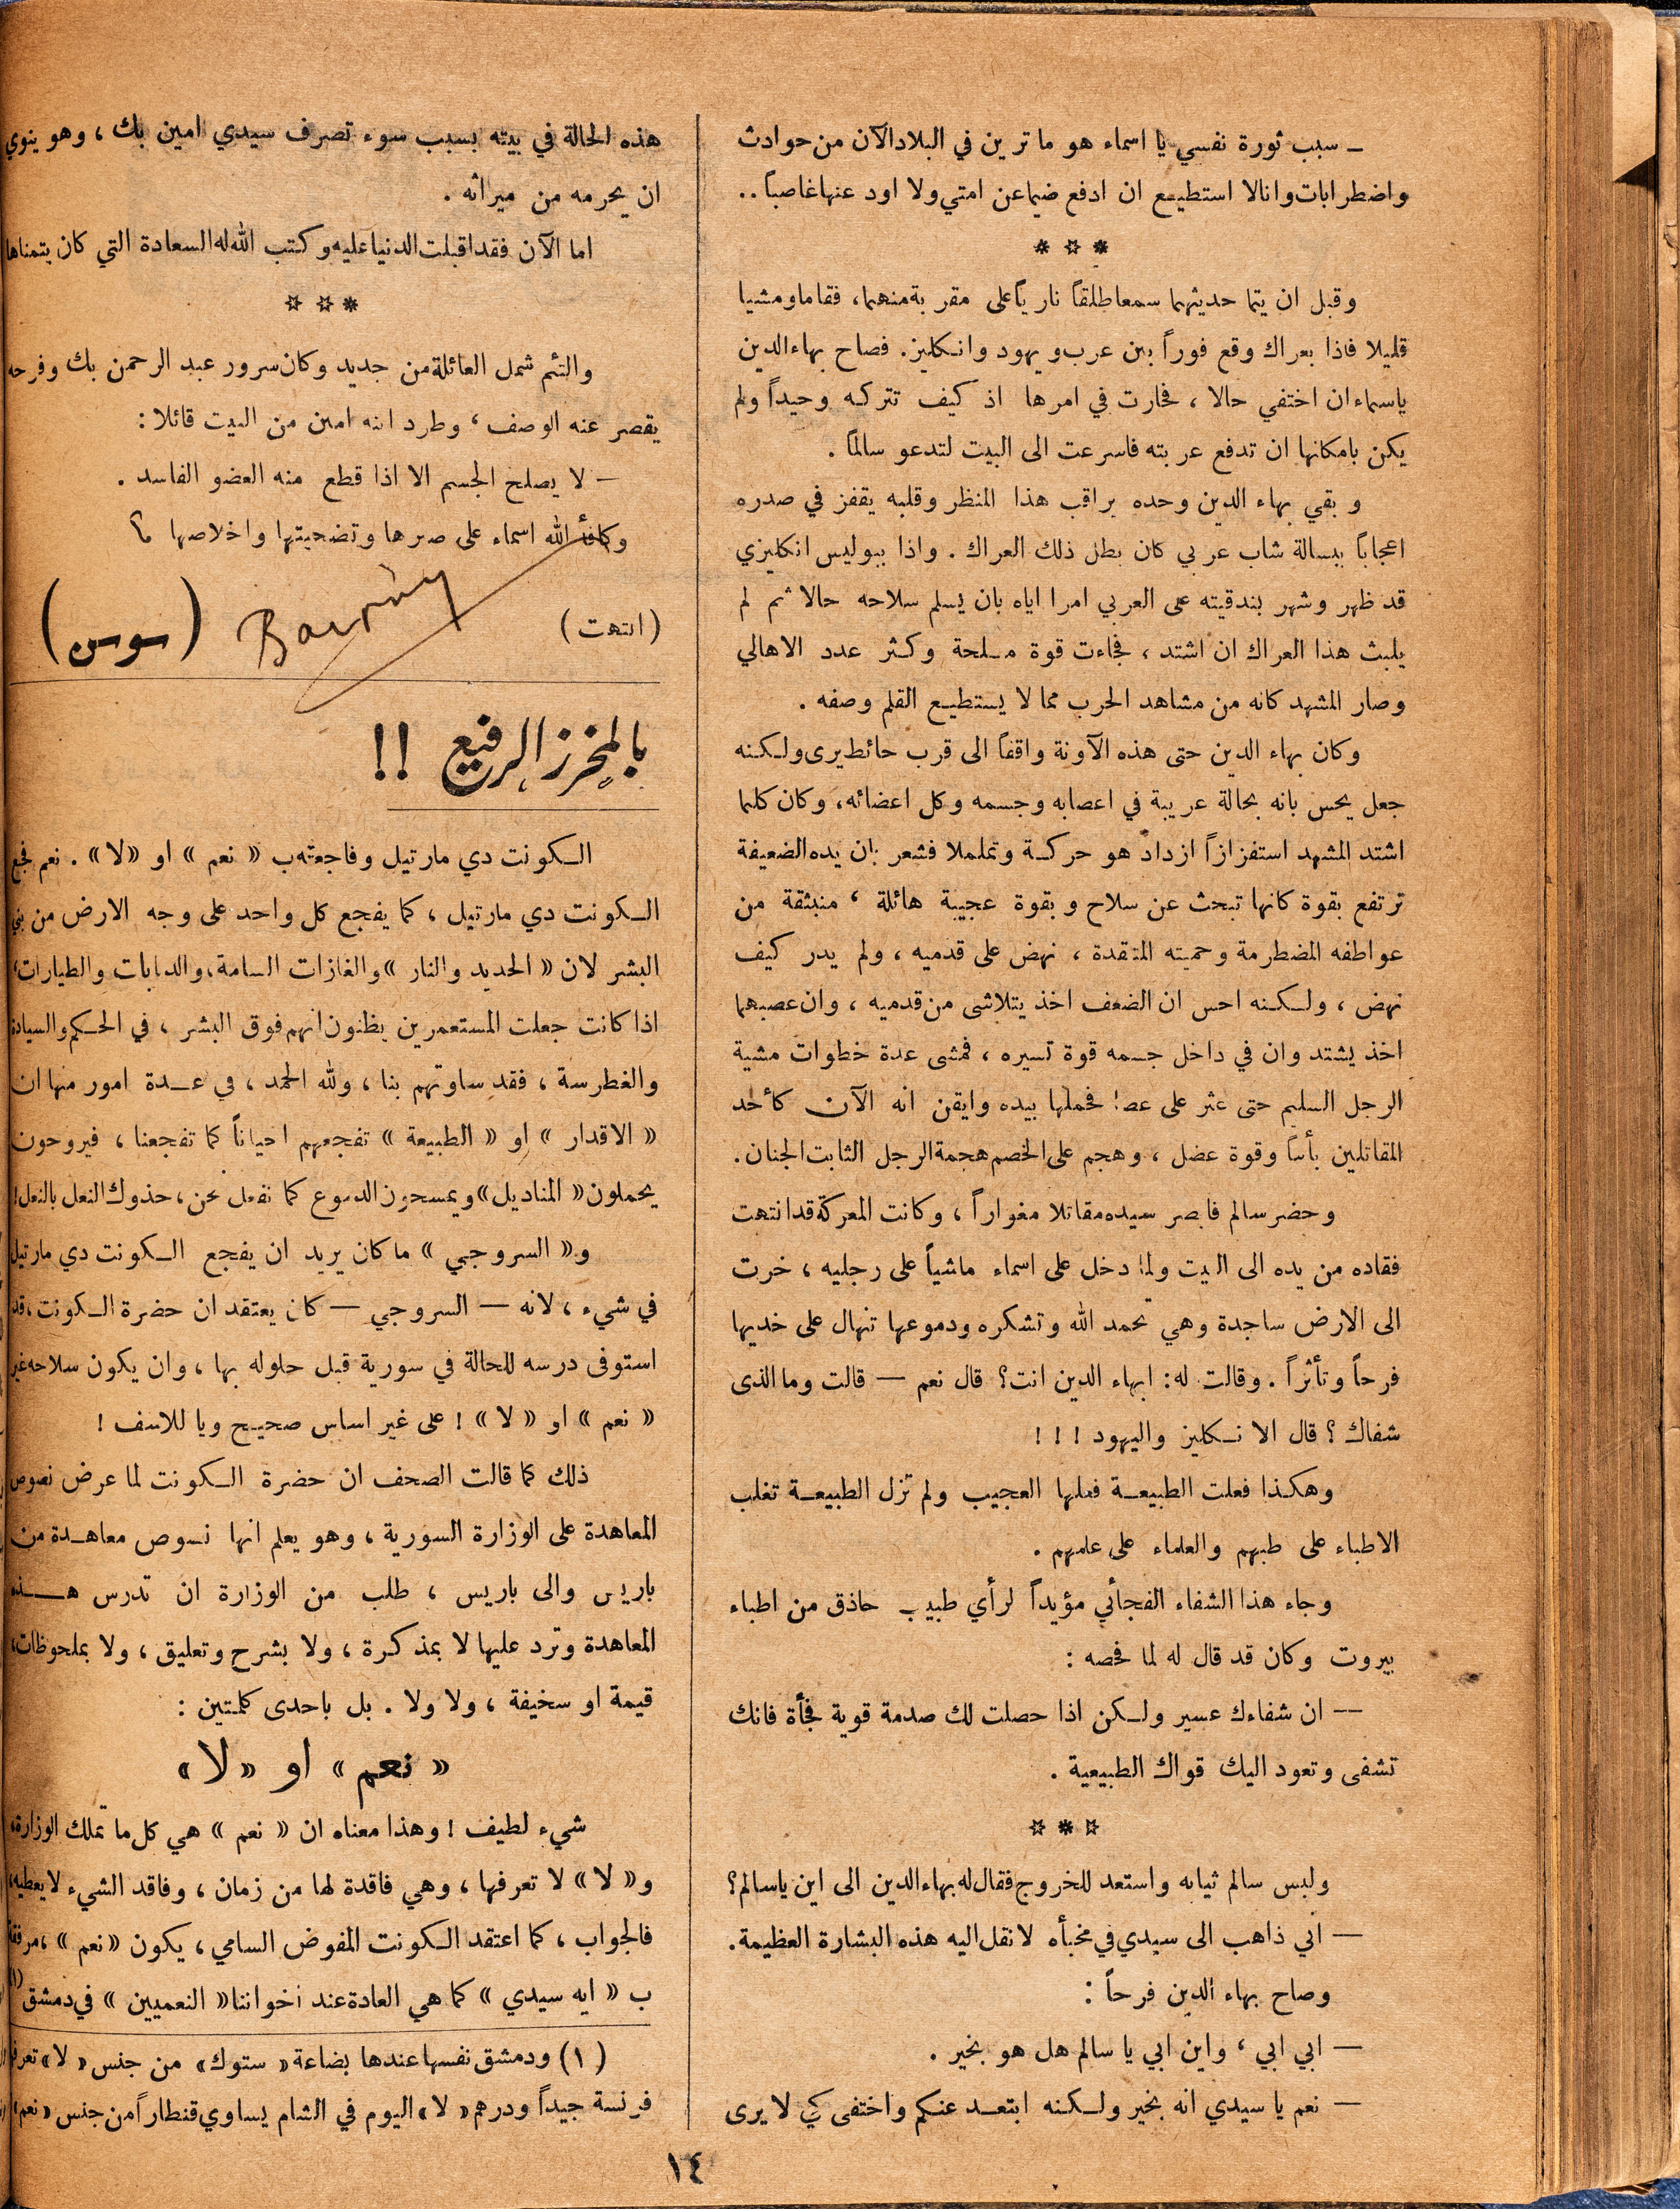 ـ سبب ثورة نفسي يا اسماء هو ما ترين في البلاد الآن من حوادث
واضطرابات وانا لا استطيع ان ادفع ضيما عن امتي ولا اود عنها غاصباً ..
* * *
وقبل ان يتما حديثهما سمعا طلقاً نارياً على مقربة منهما، فقاما ومشيا
قليلا فاذا بعراك وقع فوراً بين عرب ويهود وانكليز. فصاح بهاء الدين
باسماء ان اختفي حالا ، فحارت في امرها اذ كيف تتركه وحيداً ولم
يكن بامكانها ان تدفع عربته فاسرعت الى البيت لتدعو سالماً .
وبقي بهاء الدين وحده يراقب هذا المنظر وقلبه يقفز في صدره
اعجاباً ببسالة شاب عربي كان بطل ذلك العراك . واذا ببوليس انكليزي
قد ظهر وشهر بندقيته على العربي امرا اياه بان يسلم سلاحه حالا ثم لم
يلبث هذا العراك ان اشتد ، فجاءت قوة مسلحة وكثر عدد الاهالي
وصار المشهد كانه من مشاهد الحرب مما لا يستطيع القلم وصفه .
وكان بهاء الدين حتى هذه الآونة واقفاً الى قرب حائط يرى ولكنه
جعل يحس بانه بحالة غريبة في اعصابه وجسمه وكل اعضائه، وكان كلما
اشتد المشهد استفزازاً ازداد هو حركة وتململا فشعر بان يده الضعيفة
ترتفع بقوة كانها تبحث عن سلاح وبقوة عجيبة هائلة ، منبثقة من
عواطفه المضطرمة وحميته المتقدة ، نهض على قدميه ، ولم يدر كيف
نهض ، ولكنه احس ان الضعف اخذ يتلاشى من قدميه ، وان عصبهما
اخذ يشتد وان في داخل جسمه قوة تسيره ، فمشى عدة خطوات مشية
الرجل السليم حتى عثر على عصا فحملها بيده وايقن انه الآن كأحد
المقاتلين بأساً وقوة عضل ، وهجم على الخصم هجمة الرجل الثابت الجنان .
وحضر سالم فابصر سيده مقاتلا مغواراً ، وكانت المعركة قد انتهت
فقاده من يده الى البيت ولما دخل على اسماء ماشياً على رجليه ، خرت
الى الارض ساجدة وهي تحمد الله وتشكره ودموعها تنهال على خديها
فرحاً وتأثراً . وقالت له: ابهاء الدين انت؟ قال نعم — قالت وما الذى
شفاك ؟ قال الانكليز واليهود ! ! !
وهكذا فعلت الطبيعة فعلها العجيب ولم تزل الطبيعة تغلب
الاطباء على طبهم والعلماء على علمهم .
وجاء هذا الشفاء الفجائي مؤيداً لرأي طبيب حاذق من اطباء
بيروت وكان قد قال له لما فحصه :
— ان شفاءك عسير ولكن اذا حصلت لك صدمة قوية فجأة فانك
تشفى وتعود اليك قواك الطبيعية .
* * *
ولبس سالم ثيابه واستعد للخروج فقال له بهاء الدين الى اين يا سالم؟
— اني ذاهب الى سيدي في مخبأه لانقل اليه هذه البشارة العظيمة .
وصاح بهاء الدين فرحاً :
— ابي ابي ، واين ابي يا سالم هل هو بخير .
— نعم يا سيدي انه بخير ولكنه ابتعد عنكم واختفى كي لا يرى
هذه الحالة في بيته بسبب سوء تصرف سيدي امين بك ، وهو ينوي
ان يحرمه من ميراثه .
اما الآن فقد اقبلت الدنيا عليه وكتب الله له السعادة التي كان يتمناها
* * *
والتئم شمل العائلة من جديد وكان سرور عبد الرحمن بك وفرحه
يقصر عنه الوصف ، وطرد ابنه امين من البيت قائلا :
— لا يصلح الجسم الا اذا قطع منه العضو الفاسد .
وكافأ الله اسماء على صبرها وتضحيتها واخلاصها ؟
(انتهت)
(سوسن)
بالمخرز الرفيع !!
الكونت دي مارتيل وفاجعته ب « نعم » او «لا» . نعم فجع
الكونت دي مارتيل ، كما يفجع كل واحد على وجه الارض من بني
البشر لان « الحديد والنار » والغازات السامة، والدبابات والطيارات،
اذا كانت جعلت المستعمرين يظنون انهم فوق البشر ، في الحكم والسيادة
والغطرسة ، فقد ساوتهم بنا ، ولله الحمد ، في عدة امور منها ان
« الاقدار » او « الطبيعة » تفجعهم احياناً كما تفجعنا ، فيروحون
يحملون « المناديل » ويمسحون الدموع كما نفعل نحن، حذوك النعل بالنعل!
و« السروجي » ما كان يريد ان يفجع الكونت دي مارتيل
في شيء ، لانه — السروجي — كان يعتقد ان حضرة الكونت، قد
استوفى درسه للحالة في سورية قبل حلوله بها ، وان يكون سلاحه غير
« نعم » او « لا » ! على غير اساس صحيح ويا للاسف !
ذلك كما قالت الصحف ان حضرة الكونت لما عرض نصوص
المعاهدة على الوزارة السورية ، وهو يعلم انها نصوص معاهدة من
باريس والى باريس ، طلب من الوزارة ان تدرس هذه
المعاهدة وترد عليها لا بمذكرة ، ولا بشرح وتعليق ، ولا بملحوظات،
قيمة او سخيفة ، ولا ولا . بل باحدى كلمتين :
« نعم » او « لا »
شيء لطيف ! وهذا معناه ان « نعم » هي كل ما تملك الوزارة،
و« لا » لا تعرفها ، وهي فاقدة لها من زمان ، وفاقد الشيء لا يعطيه،
فالجواب ، كما اعتقد الكونت المفوض السامي ، يكون « نعم » ، مرفقة
ب « ايه سيدي » كما هي العادة عند اخواننا « النعميين » في دمشق (١)
(١) ودمشق نفسها عندها بضاعة « ستوك » من جنس « لا » تعرفها
فرنسة جيداً ودرهم « لا » اليوم في الشام يساوي قنطاراً من جنس « نعم »
١٤